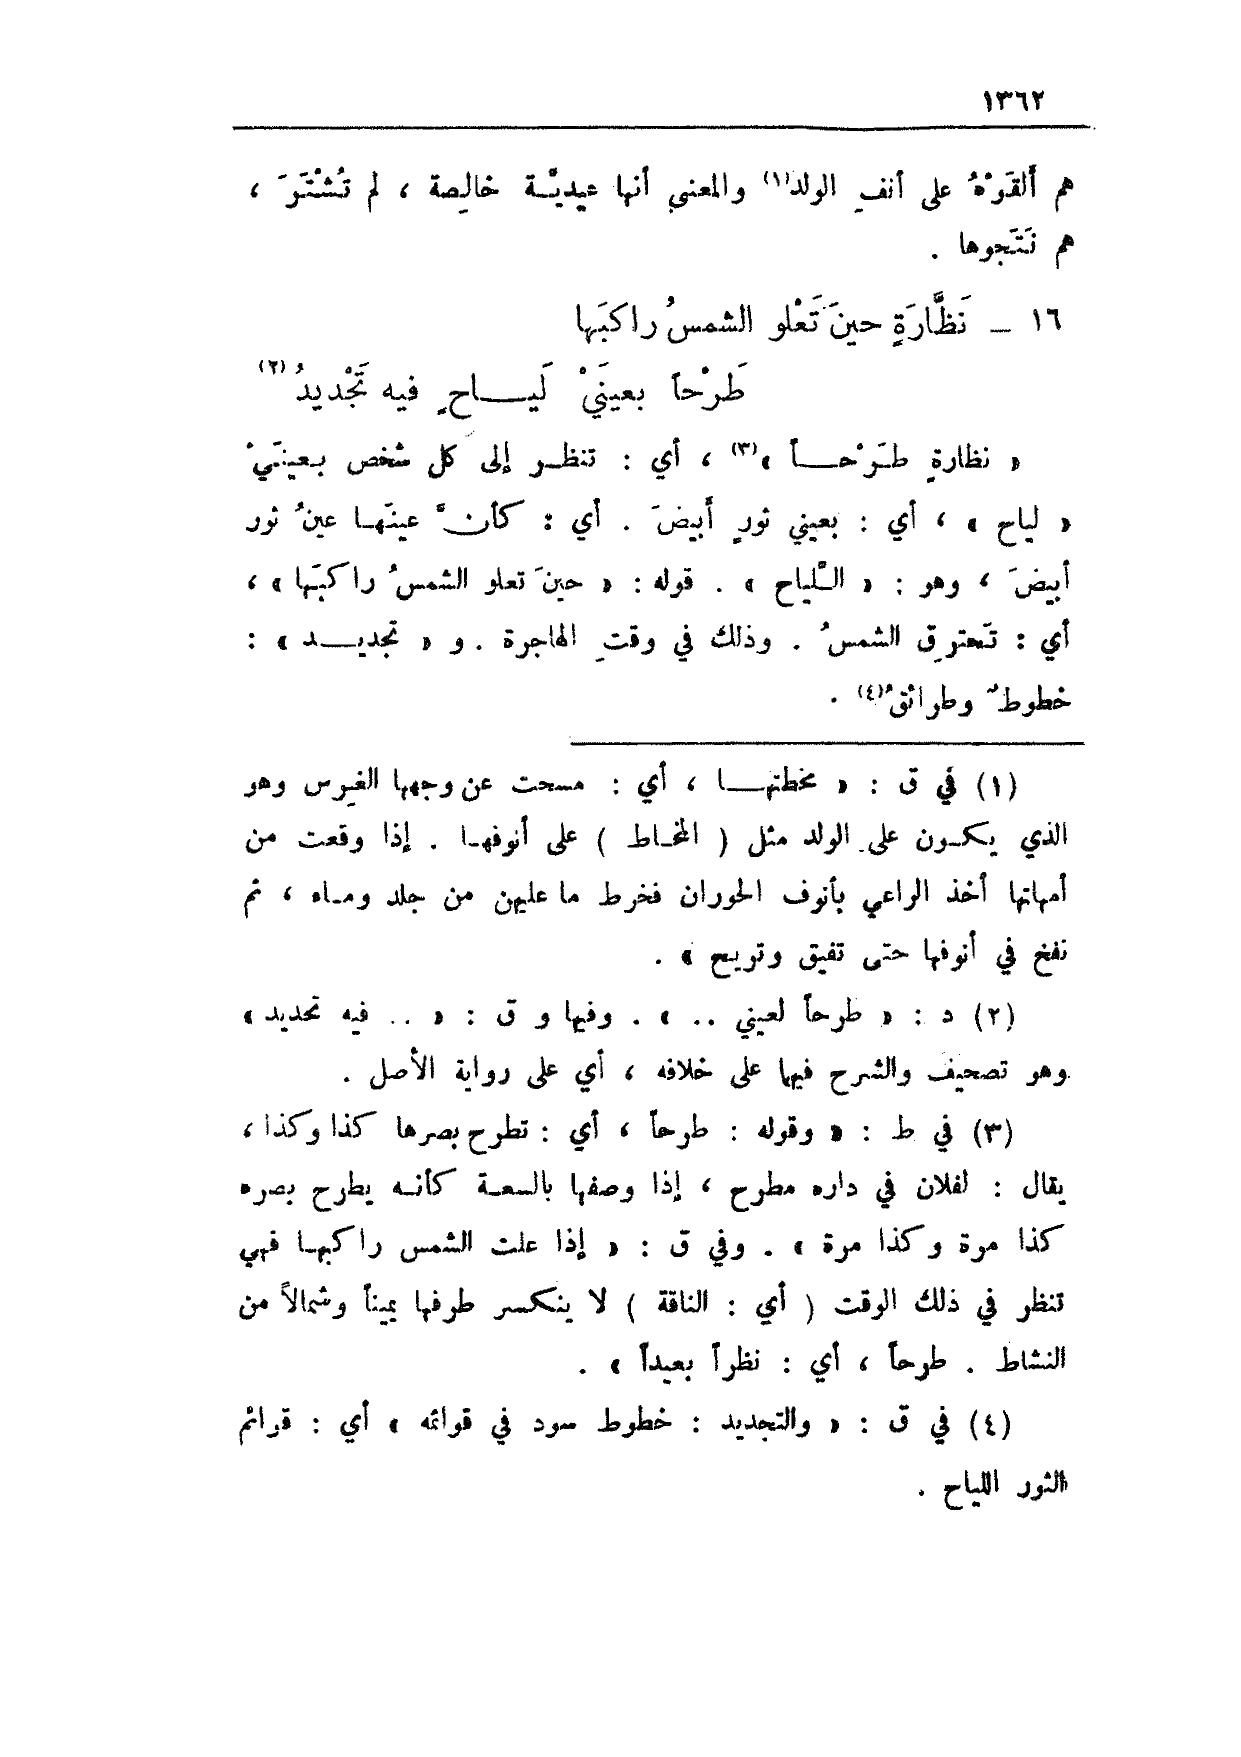 ١٣٦٢
هم أَلقَوْهُ على أنفِ الولد(١) والمعنى أنها عيديّة خالِصة ، لم تُشْتَرَ ،
هم نَتَجوها .
١٦ ـ نَظَّارَةٍ حينَ تَعْلو الشمسُ راكبَها
طَرْحاً بعينَيْ لَيـــاحٍ فيه تَجْديدُ(٢)
« نظارةٍ طَرْحــاً »(٣) ، أي : تنظر إلى كل شخص بعينَيْ
« لياح » ، أي : بعيني ثورٍ أبيضَ . أي : كأنَّ عينَها عينُ ثور
أبيضَ ، وهو : « اللَّياح » . قوله : « حينَ تعلو الشمسُ راكبَها » ،
أي : تَحترِق الشمسُ . وذلك في وقتِ الهاجرة . و « تجديــد » :
خطوطٌ وطرائقُ(٤) .
(١) في ق : « مخطتهــا ، أي : مسحت عن وجهها الغِرس وهو
الذي يكون على الولد مثل ( المخاط ) على أنوفها . إذا وقعت من
أمهاتها أخذ الراعي بأنوف الحوران فخرط ما عليهن من جلد وماء ، ثم
نفخ في أنوفها حتى تفيق وتريح » .
(٢) د : « طرحاً لعيني .. » . وفيها و ق : « .. فيه تحديد »
وهو تصحيف والشرح فيها على خلافه ، أي على رواية الأصل .
(٣) في ط : « وقوله : طرحاً ، أي : تطرح بصرها كذا وكذا ،
يقال : لفلان في داره مطرح ، إذا وصفها بالسعة كأنه يطرح بصره
كذا مرة وكذا مرة » . وفي ق : « إذا علت الشمس راكبها فهي
تنظر في ذلك الوقت ( أي : الناقة ) لا ينكسر طرفها يميناً وشمالاً من
النشاط . طرحاً ، أي : نظراً بعيداً » .
(٤) في ق : « والتجديد : خطوط سود في قوائمه » أي : قوائم
الثور اللياح .